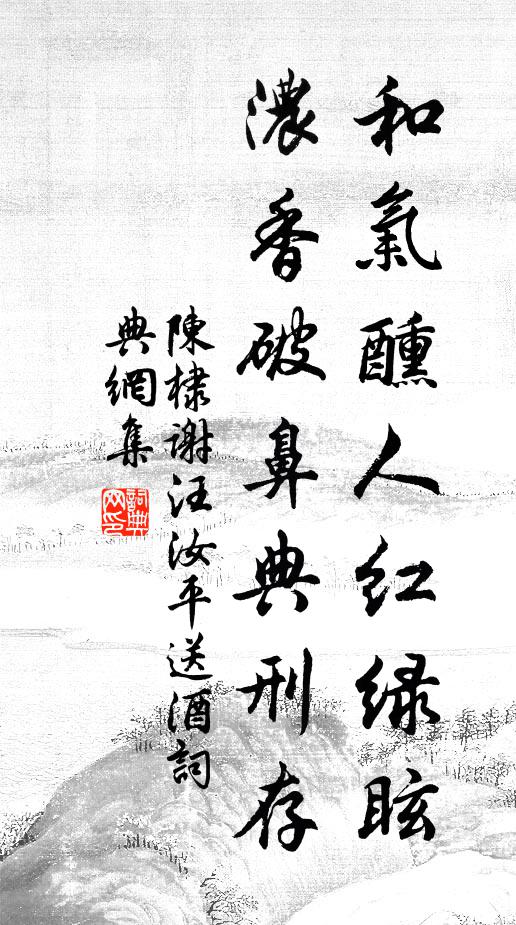 和氣醺人紅绿眩
濃香破鼻典刑存
陳棣謝汪汝平送酒詞
典網集
詞典网印